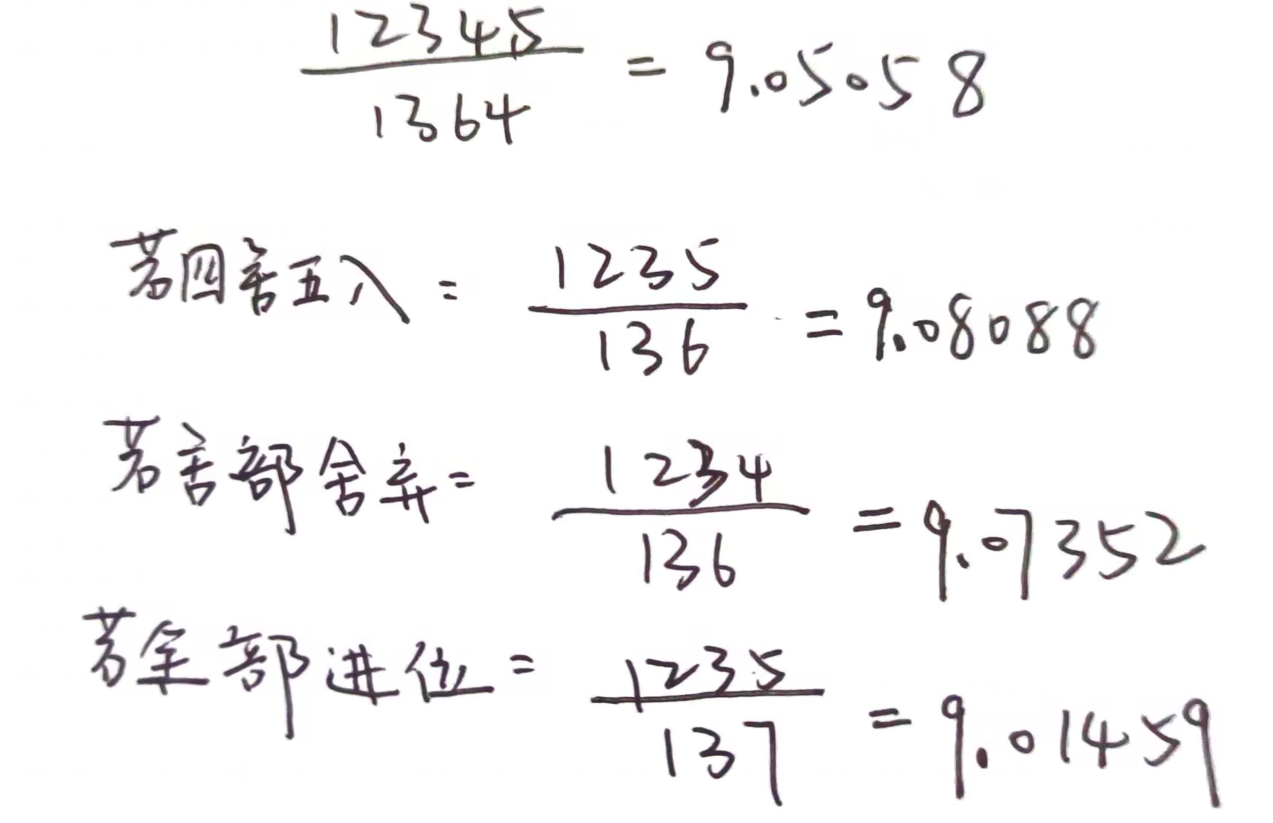 12345/1364 = 9.05058
若四舍五入: 1235/136 = 9.08088
若舍部舍弃= 1234/136 = 9.07352
若全部进位= 1235/137 = 9.01459